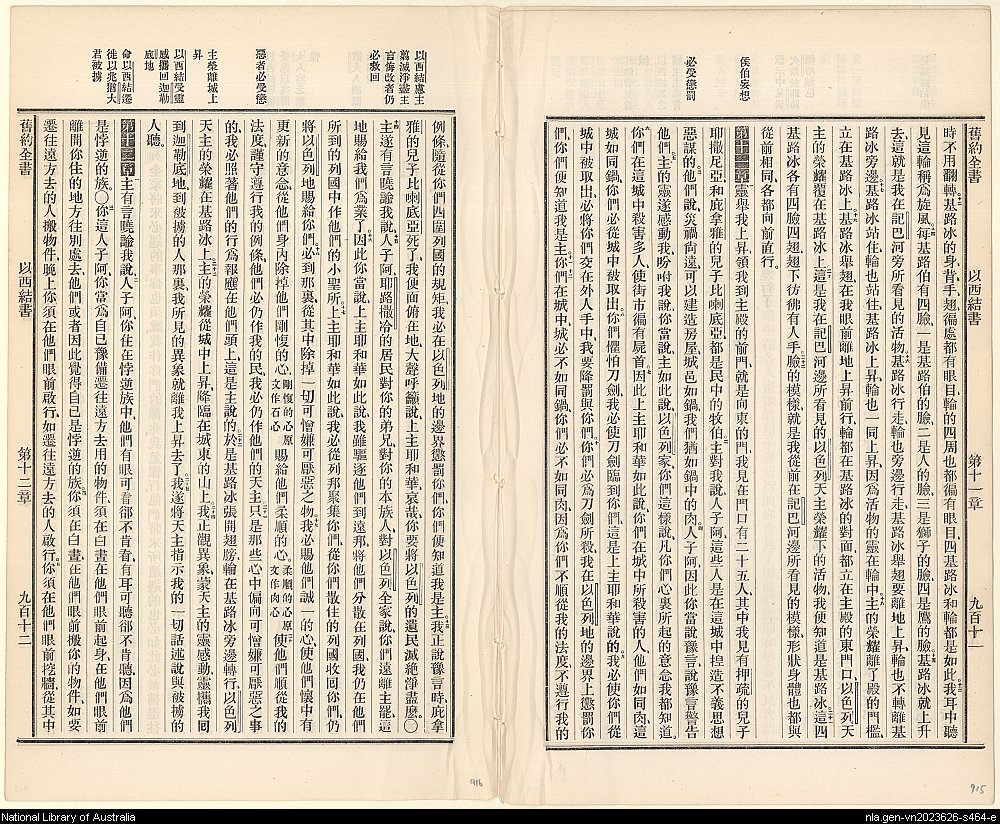 舊約全書 以西結書 第十一章 九百十一
時不用翻轉基路冰的身背手翅徧處都有眼目輪的四周也都徧有眼目四基路冰和輪都是如此我耳中聽
見這輪稱爲旋風每基路伯有四臉一是基路伯的臉二是人的臉三是獅子的臉四是鷹的臉基路冰就上升
去這就是我在記巴河旁所看見的活物基路冰行走輪也旁邊行走基路冰舉翅要離地上升輪也不轉離基
路冰旁邊基路冰站住輪也站住基路冰上升輪也一同上升因爲活物的靈在輪中主的榮耀離了殿的門檻
立在基路冰上基路冰舉翅在我眼前離地上昇前行輪都在基路冰的對面都立在主殿的東門口以色列天
主的榮耀覆在基路冰上這是我在記巴河邊所看見的以色列天主榮耀下的活物我便知道是基路冰這四
基路冰各有四臉四翅翅下彷彿有人手臉的模樣就是我從前在記巴河邊所看見的模樣形狀身體也都與
從前相同各都向前直行
侯伯妄想
第十一章靈舉我上昇領我到主殿的前門就是向東的門我見在門口有二十五人其中我見有押疏的兒子
耶撒尼亞和庇拿雅的兒子比喇底亞都是民中的牧伯主對我說人子阿這些人是在這城中揑造不義思想
必受懲罰
惡謀的他們說災禍尙遠可以建造房屋城邑如鍋我們猶如鍋中的肉人子阿因此你當說豫言說豫言警告
他們主的靈遂感動我吩咐我說你當說主如此說以色列家你們這樣說凡你們心裏所起的意念我都知道
你們在這城中殺害多人使街市徧有屍首因此上主耶和華如此說你們在城中所殺害的人他們如同肉這
城如同鍋你們必從城中被取出你們懼怕刀劍我必使刀劍臨到你們這是上主耶和華說的我必使你們從
城中被取出必將你們交在外人手中我要降罰與你們你們必爲刀劍所殺我在以色列地的邊界上懲罰你
們你們便知道我是主你們在城中城必不如同鍋你們必不如同肉因爲你們不順從我的法度不遵行我的
915
例條隨從你們四圍列國的規矩我必在以色列地的邊界懲罰你們你們便知道我是主我正說豫言時庇拿
雅的兒子比喇底亞死了我便面俯在地大聲呼籲說上主耶和華哀哉你要將以色列的遺民滅絕淨盡麽〇
以西結慮主
爲滅淨盡主
言悔改者仍
必救回
主遂有言曉諭我說人子阿耶路撒冷的居民對你的弟兄對你的本族人對以色列全家說你們遠離主罷這
地賜給我們爲業了因此你當說上主耶和華如此說我雖驅逐他們到遠邦將他們分散在列國我仍在他們
所到的列國中作他們的小聖所上主耶和華如此說我必從列邦聚集你們從你們散住的列國收回你們仍
將以色列地賜給你們必到那裏從其中除掉一切可憎嫌可厭惡之物我必賜他們誠一的心使他們懷中有
更新的意念從他們身內除掉他們剛愎的心剛愎的心原文作石心賜給他們柔順的心柔順的心原文作肉心使他們順從我的
惡者必受懲
法度謹守遵行我的例條他們必仍作我的民我必仍作他們的天主只是那些心中偏向可憎嫌可厭惡之事
的我必照著他們的行爲報應在他們頭上這是主說的於是基路冰張開翅膀輪在基路冰旁邊轉行以色列
主榮離城上
昇
天主的榮耀在基路冰上主的榮耀從城中上昇降臨在城東的山上我正觀異象蒙天主的靈感動靈攜我同
以西結受靈
感攜回迦勒
底地
到迦勒底地到被擄的人那裏我所見的異象就離我上昇去了我遂將天主指示我的一切話述說與被擄的
人聽
命以西結遷
徙以兆猶大
君被擄
第十二章主有言曉諭我說人子阿你住在悖逆族中他們有眼可看卻不肯看有耳可聽卻不肯聽因爲他們
是悖逆的族〇你這人子阿你當爲自己豫備遷往遠方去用的物件須在白晝在他們眼前起身在他們眼前
離開你住的地方往別處去他們或者因此覺得自己是悖逆的族你須在白晝在他們眼前搬你的物件如要
遷往遠方去的人搬物件晚上你須在他們眼前啟行如遷往遠方去的人啟行你須在他們眼前挖牆從其中
舊約全書 以西結書 第十二章 九百十二
916
National Library of Australia
nla.gen-vn2023626-s464-e